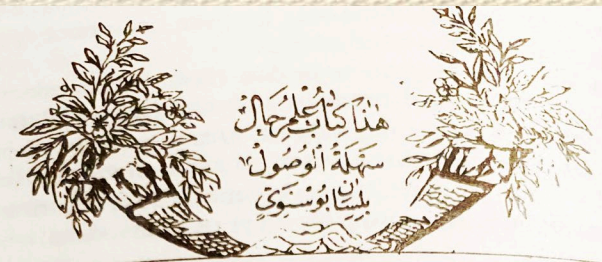 هٰذَا كِتَابُ عِلْمُ حَالْ
سَهْلَةُ الْوُصُولْ
بِلِسَانِ بُوسْنَوِي